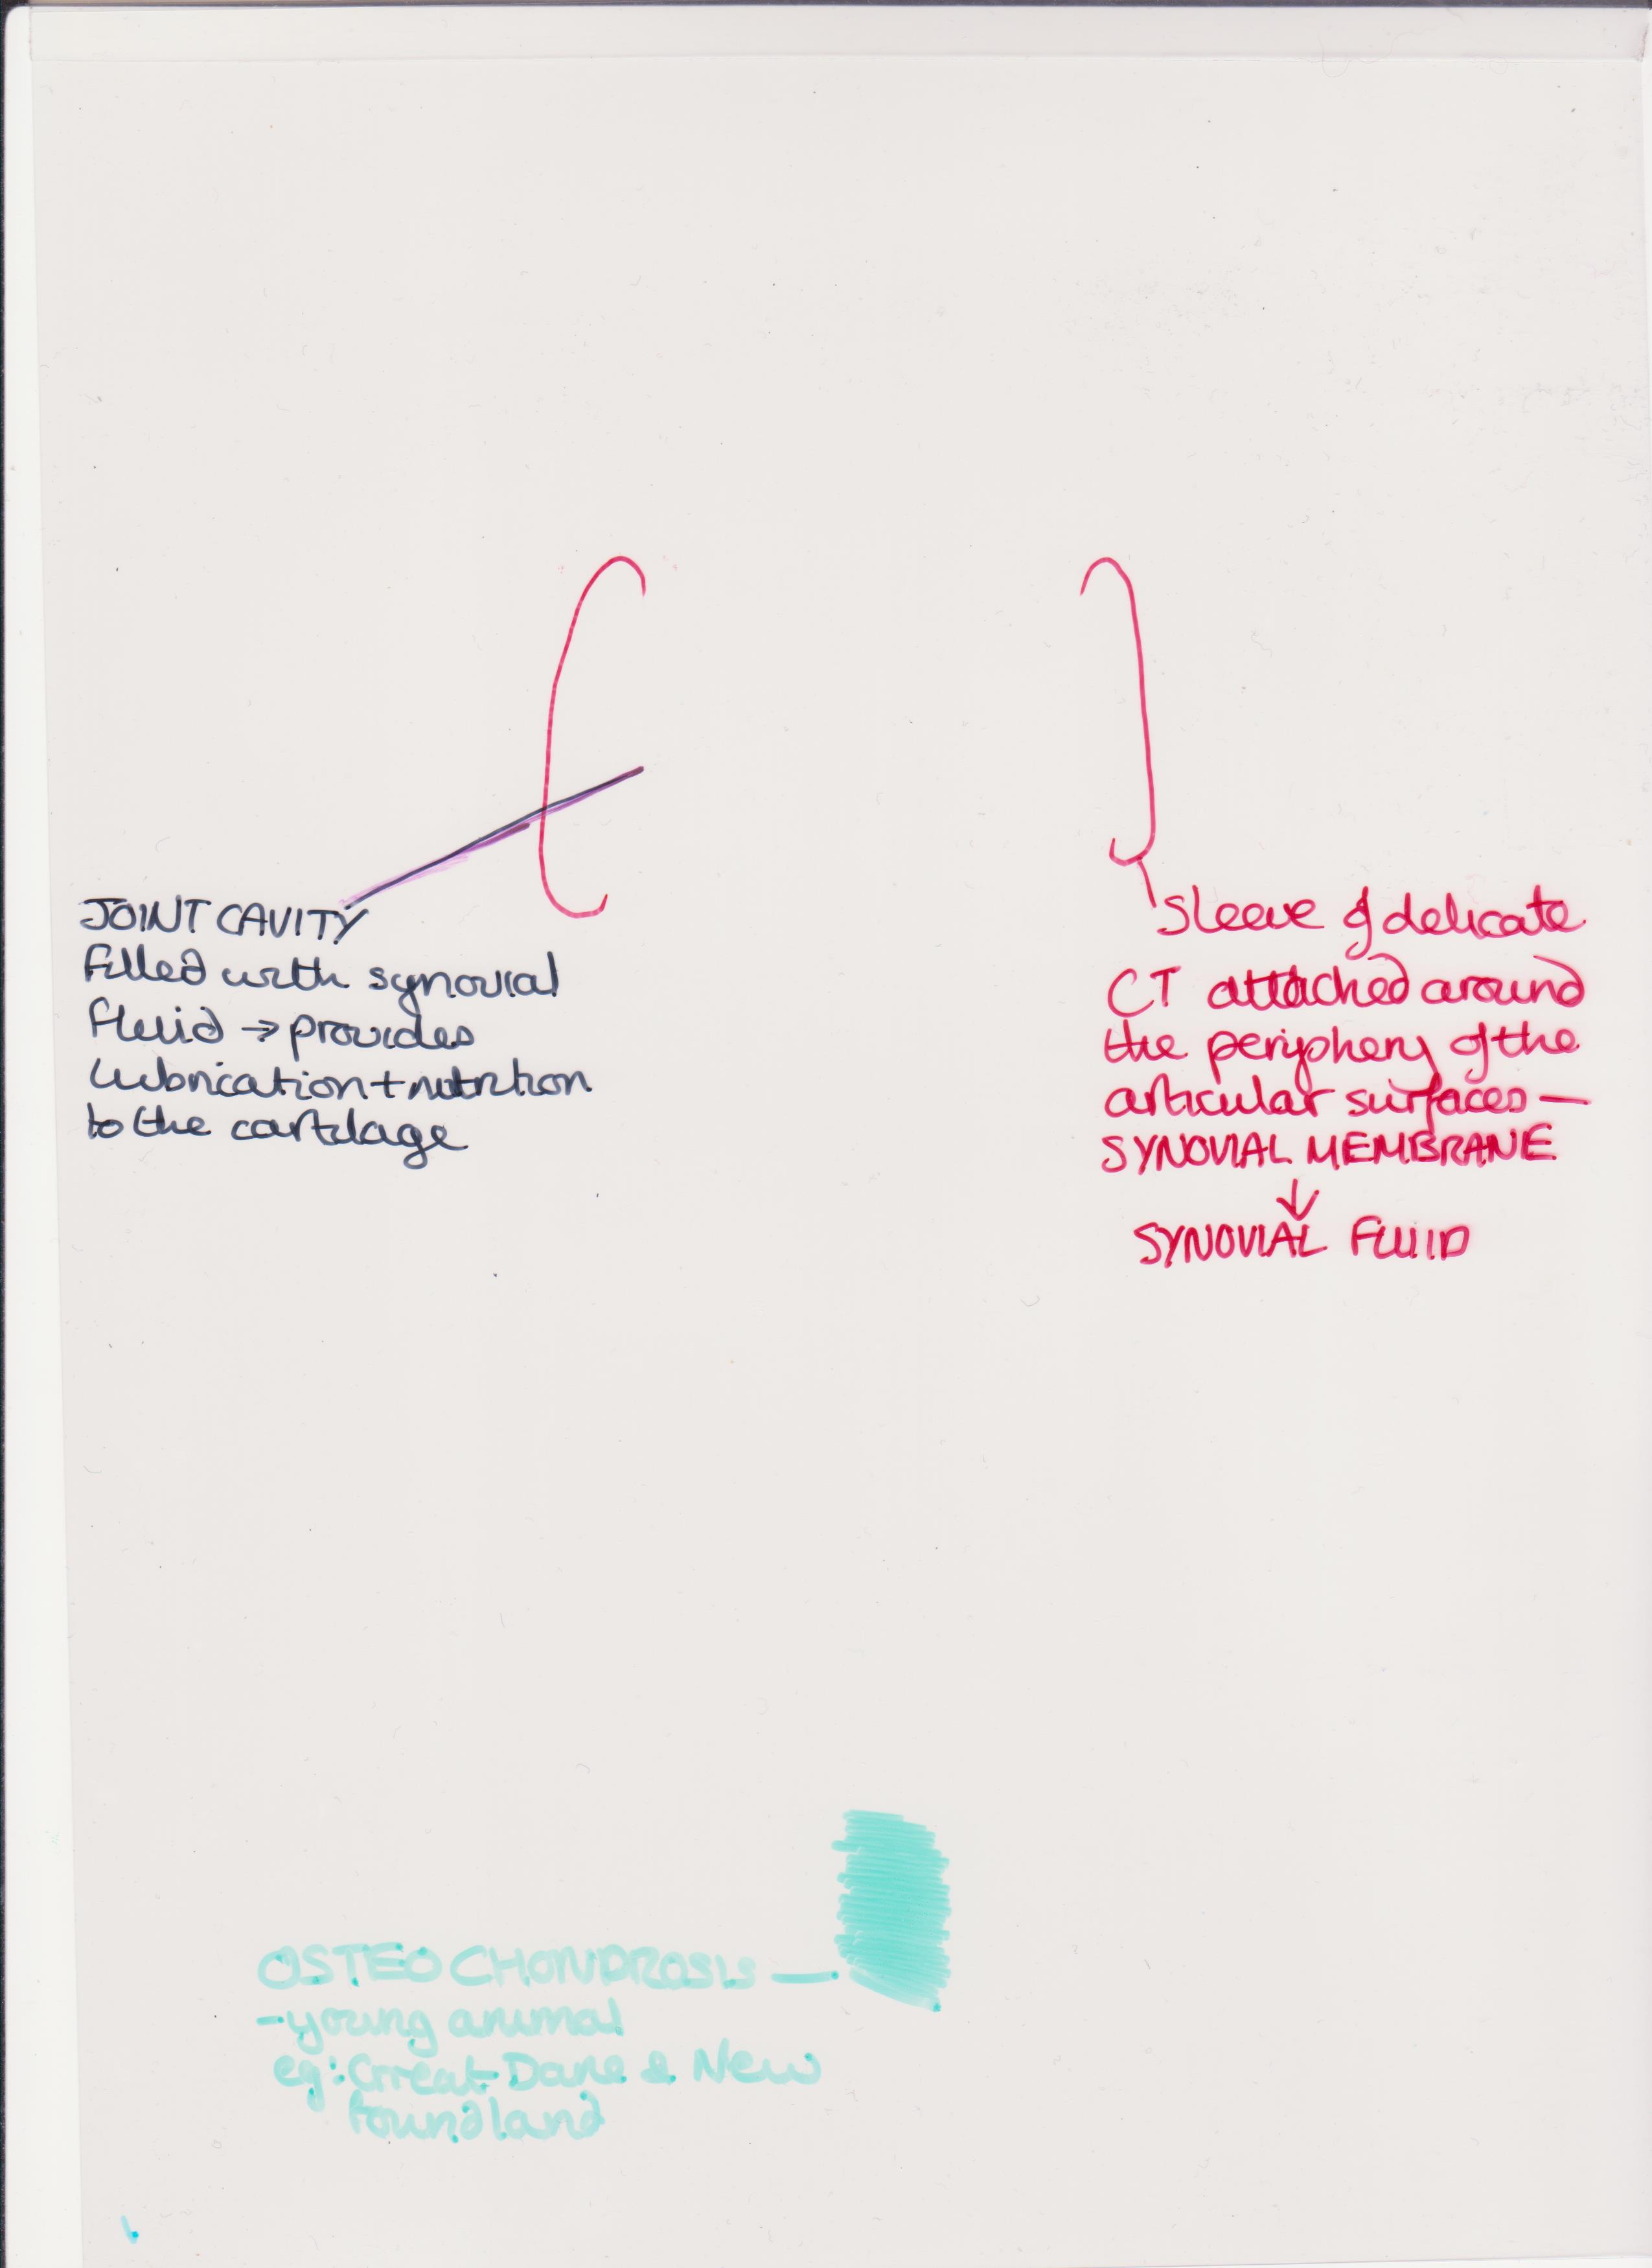 JOINT CAVITY
filled with synovial
fluid → provides
lubrication + nutrition
to the cartilage
Sleeve of delicate
CT attached around
the periphery of the
articular surfaces —
SYNOVIAL MEMBRANE
↓
SYNOVIAL FLUID
OSTEOCHONDROSIS —
- young animal
eg: Great Dane & New
foundland